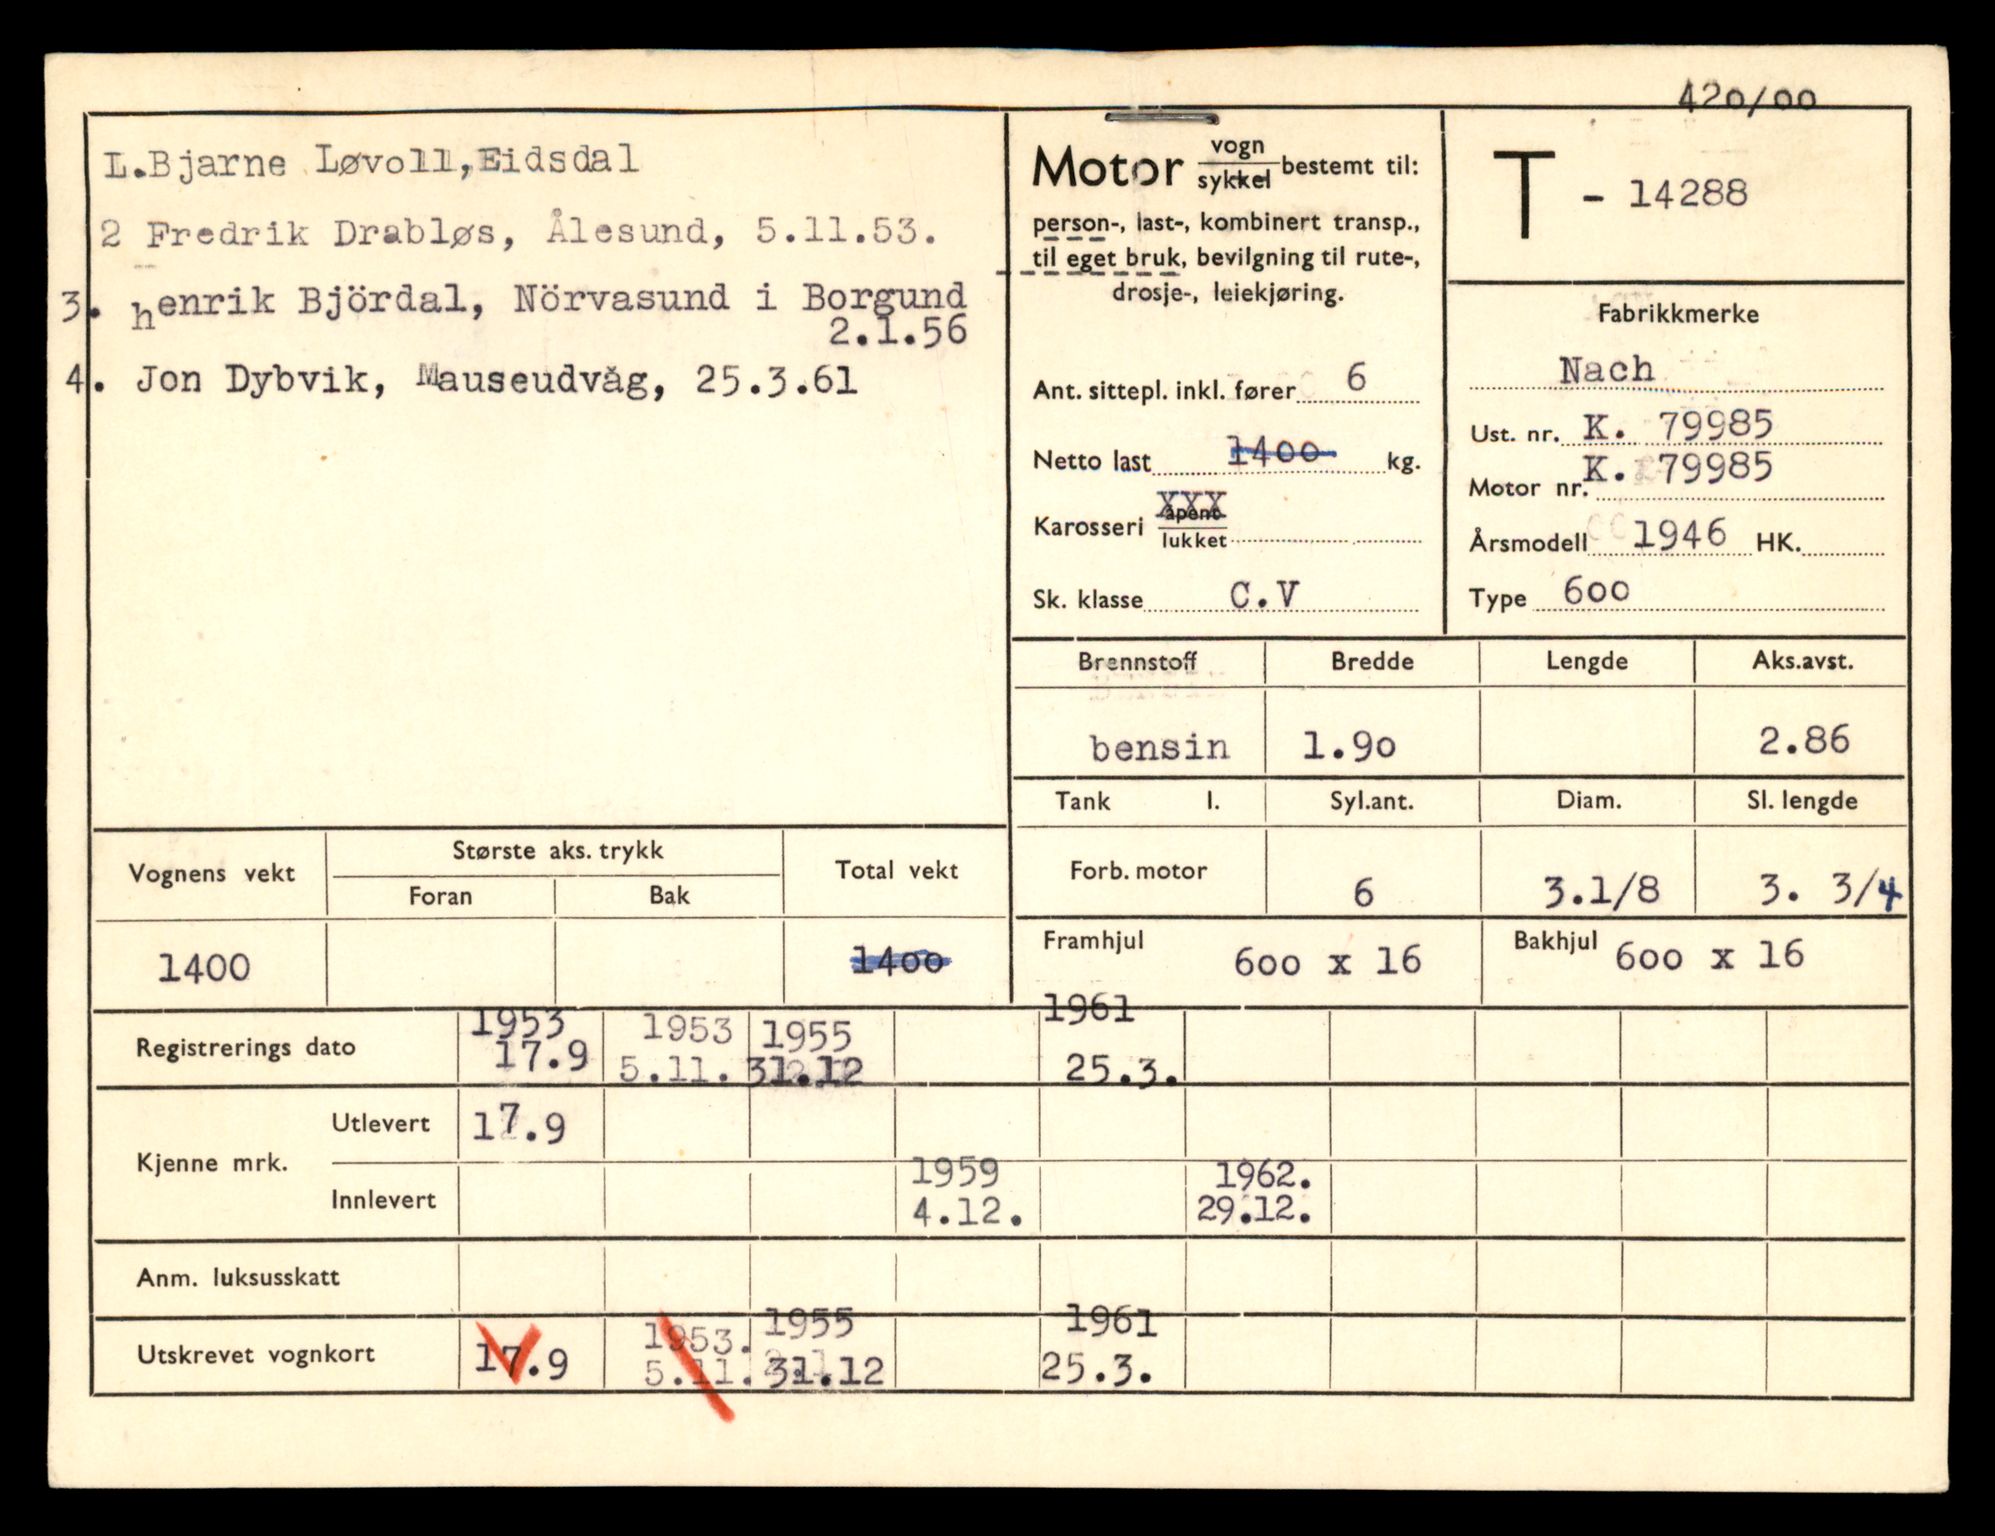 420/00
L.Bjarne Løvoll,Eidsdal
2 Fredrik Drabløs, Ålesund, 5.11.53.
3. henrik Björdal, Nörvasund i Borgund
2.1.56
4. Jon Dybvik, Mauseudvåg, 25.3.61
Motor vogn/sykkel bestemt til:
person-, last-, kombinert transp.,
til eget bruk, bevilgning til rute-,
drosje-, leiekjøring.
Ant. sittepl. inkl. fører 6
Netto last 1400 kg.
Karosseri XXX åpent/lukket
Sk. klasse C.V
T - 14288
Fabrikkmerke
Nach
Ust. nr. K. 79985
Motor nr. K. 79985
Årsmodell 1946 HK.
Type 600
Brennstoff Bredde Lengde Aks.avst.
bensin 1.90 2.86
Tank l. Syl.ant. Diam. Sl. lengde
Forb. motor 6 3.1/8 3. 3/4
Framhjul 600 x 16 Bakhjul 600 x 16
Vognens vekt Største aks. trykk Total vekt
Foran Bak
1400 1400
1953 1953 1955 1961
Registrerings dato 17.9 5.11. 31.12 25.3.
Kjenne mrk. Utlevert 17.9
1959 1962.
Innlevert 4.12. 29.12.
Anm. luksusskatt
1953. 1955 1961
Utskrevet vognkort 17.9 5.11. 31.12 25.3.